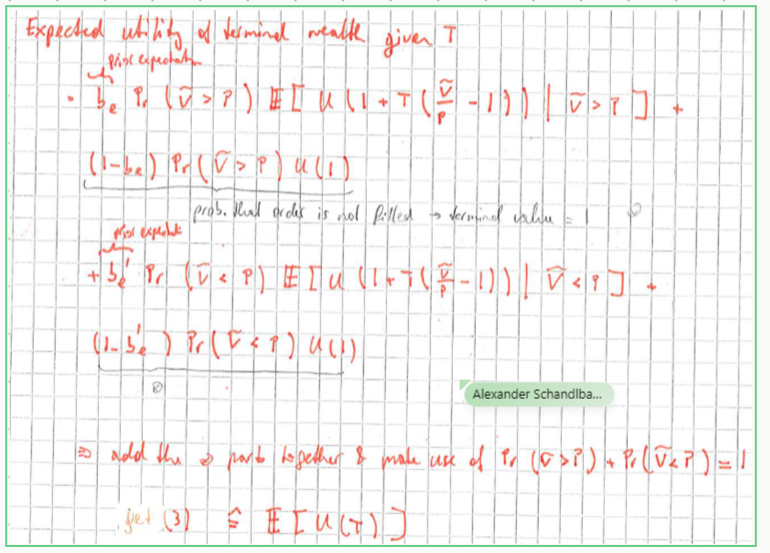 Expected utility of terminal wealth given T
prior expectation
= b_e Pr (Ṽ > P) 𝔼 [ U (1 + T (Ṽ/P - 1)) | Ṽ > P ] +
(1-b_e) Pr (Ṽ > P) U (1)
prob. that order is not filled → terminal value = 1 ⊗
prior expectati
+ b_e' Pr (Ṽ < P) 𝔼 [ U (1 + T (Ṽ/P - 1)) | Ṽ < P ] +
(1-b_e') Pr (Ṽ < P) U (1)
⊗
Alexander Schandlba...
⇒ add the ⊗ parts together & make use of Pr (Ṽ > P) + Pr (Ṽ < P) = 1
get (3) ≙ 𝔼 [ U (T) ]